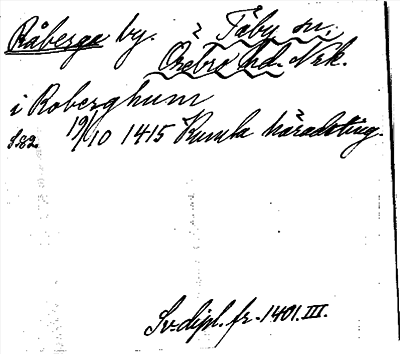 Råberga by. i Täby sn.
Örebro hd. Nrk.
i Roberghum
S82. 19/10 1415 Kumla häradsting.
Sv. dipl. fr. 1401. III.